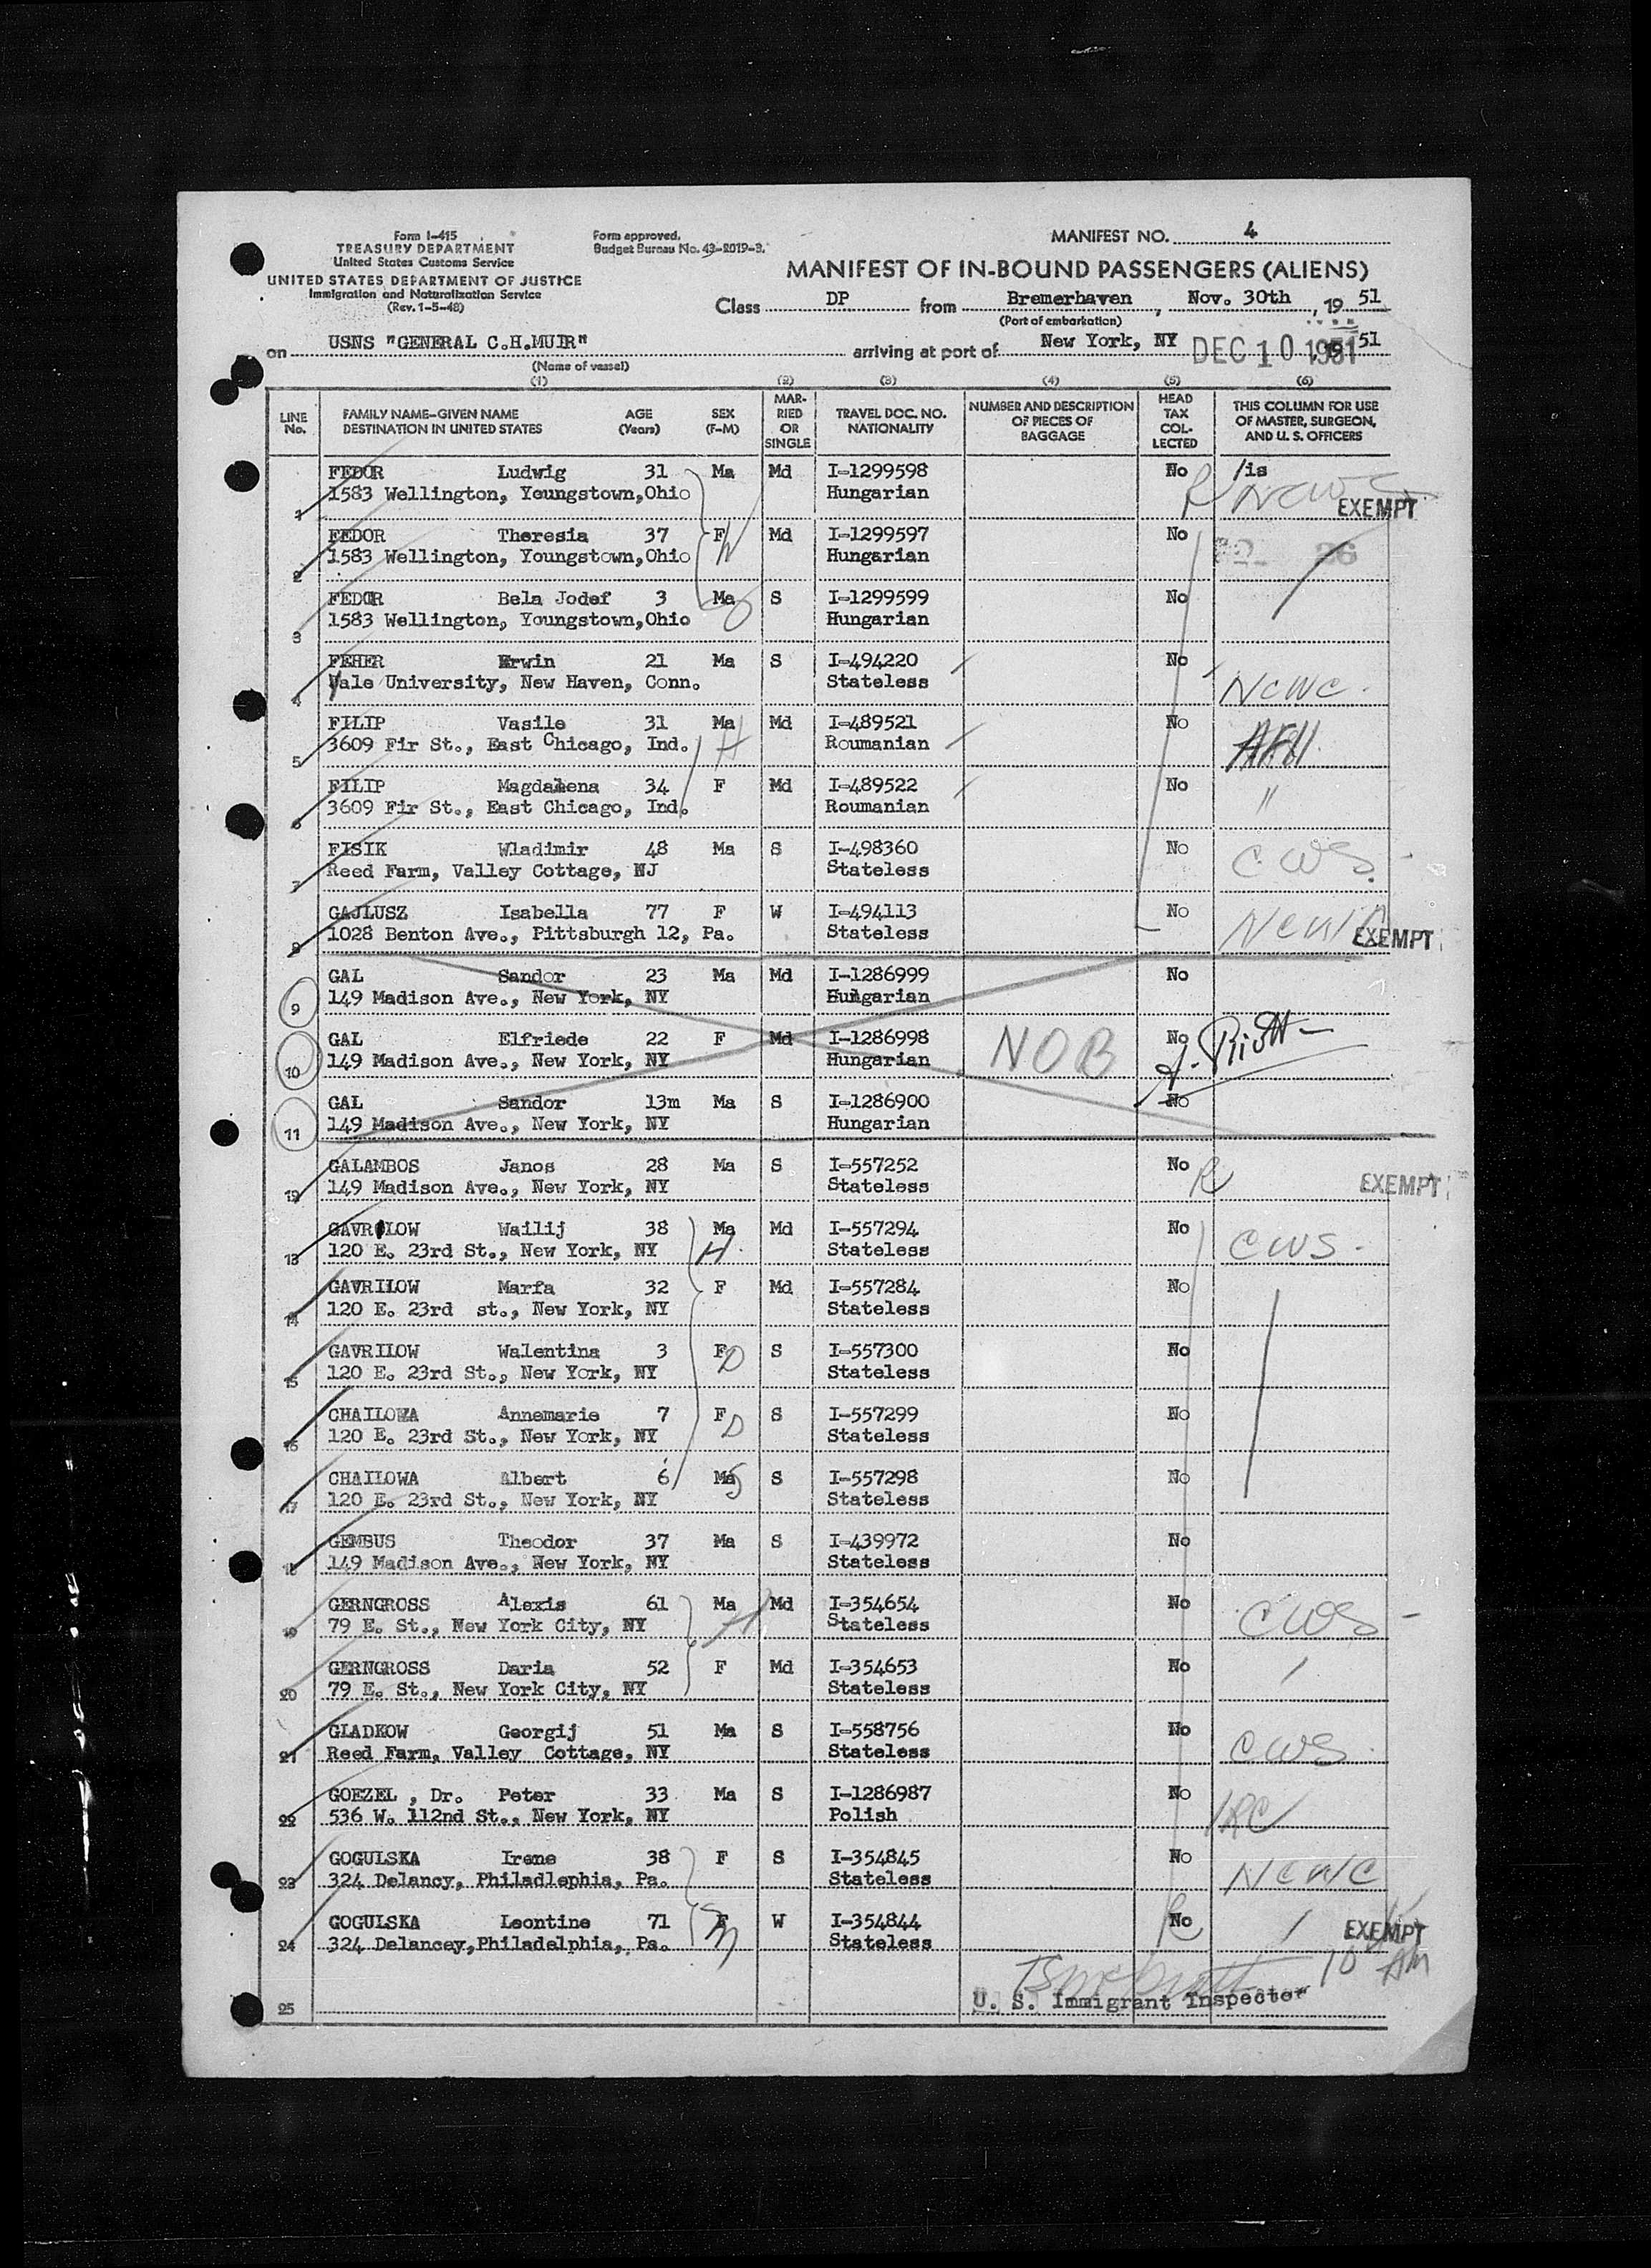 Form I-415
TREASURY DEPARTMENT
United States Customs Service
UNITED STATES DEPARTMENT OF JUSTICE
Immigration and Naturalization Service
(Rev. 1-5-48)
Form approved.
Budget Bureau No. 43-R019-3.
MANIFEST NO. 4
MANIFEST OF IN-BOUND PASSENGERS (ALIENS)
Class DP from Bremerhaven, Nov. 30th, 19 51
(Port of embarkation)
on USNS "GENERAL C.H.MUIR" arriving at port of New York, NY DEC 10 1951 51
(Name of vessel)
(1) (2) (3) (4) (5) (6)
LINE No. FAMILY NAME-GIVEN NAME DESTINATION IN UNITED STATES AGE (Years) SEX (F-M) MARRIED OR SINGLE TRAVEL DOC. NO. NATIONALITY NUMBER AND DESCRIPTION OF PIECES OF BAGGAGE HEAD TAX COLLECTED THIS COLUMN FOR USE OF MASTER, SURGEON, AND U. S. OFFICERS
FEDOR Ludwig 31 Ma Md I-1299598 No /is
1 1583 Wellington, Youngstown,Ohio Hungarian R NCWC EXEMPT
FEDOR Theresia 37 F W Md I-1299597 No
2 1583 Wellington, Youngstown,Ohio Hungarian 26
FEDOR Bela Jodef 3 Ma S I-1299599 No
3 1583 Wellington, Youngstown,Ohio Hungarian
FEHER Erwin 21 Ma S I-494220 No
4 Yale University, New Haven, Conn. Stateless NCWC
FILIP Vasile 31 Ma H Md I-489521 No
5 3609 Fir St., East Chicago, Ind. Roumanian
FILIP Magdalena 34 F Md I-489522 No
6 3609 Fir St., East Chicago, Ind. Roumanian "
FISIK Wladimir 48 Ma S I-498360 No
7 Reed Farm, Valley Cottage, NJ Stateless CWS.
GAJLUSZ Isabella 77 F W I-494113 No
8 1028 Benton Ave., Pittsburgh 12, Pa. Stateless NCWC EXEMPT
GAL Sandor 23 Ma Md I-1286999 No
9 149 Madison Ave., New York, NY Hungarian
GAL Elfriede 22 F Md I-1286998 NOB No
10 149 Madison Ave., New York, NY Hungarian
GAL Sandor 13m Ma S I-1286900 No
11 149 Madison Ave., New York, NY Hungarian
GALAMBOS Janos 28 Ma S I-557252 No
12 149 Madison Ave., New York, NY Stateless R EXEMPT
GAVRILOW Wailij 38 Ma Md I-557294 No
13 120 E. 23rd St., New York, NY H. Stateless CWS -
GAVRILOW Marfa 32 F Md I-557284 No
14 120 E. 23rd st., New York, NY Stateless
GAVRILOW Walentina 3 F D S I-557300 No
15 120 E. 23rd St., New York, NY Stateless
CHAILOWA Annemarie 7 F D S I-557299 No
16 120 E. 23rd St., New York, NY Stateless
CHAILOWA Albert 6 Ma S S I-557298 No
17 120 E. 23rd St., New York, NY Stateless
GEMBUS Theodor 37 Ma S I-439972 No
18 149 Madison Ave., New York, NY Stateless
GERNGROSS Alexis 61 Ma H Md I-354654 No
19 79 E. St., New York City, NY Stateless CWS -
GERNGROSS Daria 52 F Md I-354653 No
20 79 E. St., New York City, NY Stateless
GLADKOW Georgij 51 Ma S I-558756 No
21 Reed Farm, Valley Cottage, NY Stateless CWS
GOEZEL , Dr. Peter 33 Ma S I-1286987 No
22 536 W. 112nd St., New York, NY Polish IRC
GOGULSKA Irene 38 F S I-354845 No
23 324 Delancy, Philadlephia, Pa. Stateless NCWC
GOGULSKA Leontine 71 F M W I-354844 R No EXEMPT
24 324 Delancey,Philadelphia, Pa. Stateless
10 AM
25 U. S. Immigrant Inspector